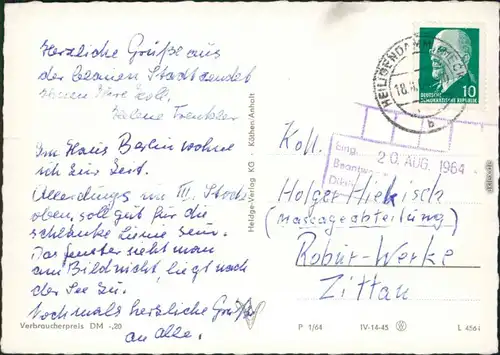 Herzliche Grüße aus
der blauen Stadt sendet
Ihnen Ihre Koll.
Helene
Im Haus Berlin wohne
ich zur Zeit.
Allerdings im III. Stock
oben, soll gut für die
schlanke Linie sein.
Das Fenster sieht man
am Bild nicht, liegt nach
der See zu.
Nochmals herzliche Grüße
an Alle.
Verbraucherpreis DM -,20
Heldge-Verlag KG · Köthen/Anhalt
HEILIGENDAMM
18.8.
b
DEUTSCHE
DEMOKRATISCHE REPUBLIK
10
Eing.
20. AUG. 1964
Koll.
Holger Hiekisch
(Massageabteilung)
Robur-Werke
Zittau
P 1/64
IV-14-45
L 4561